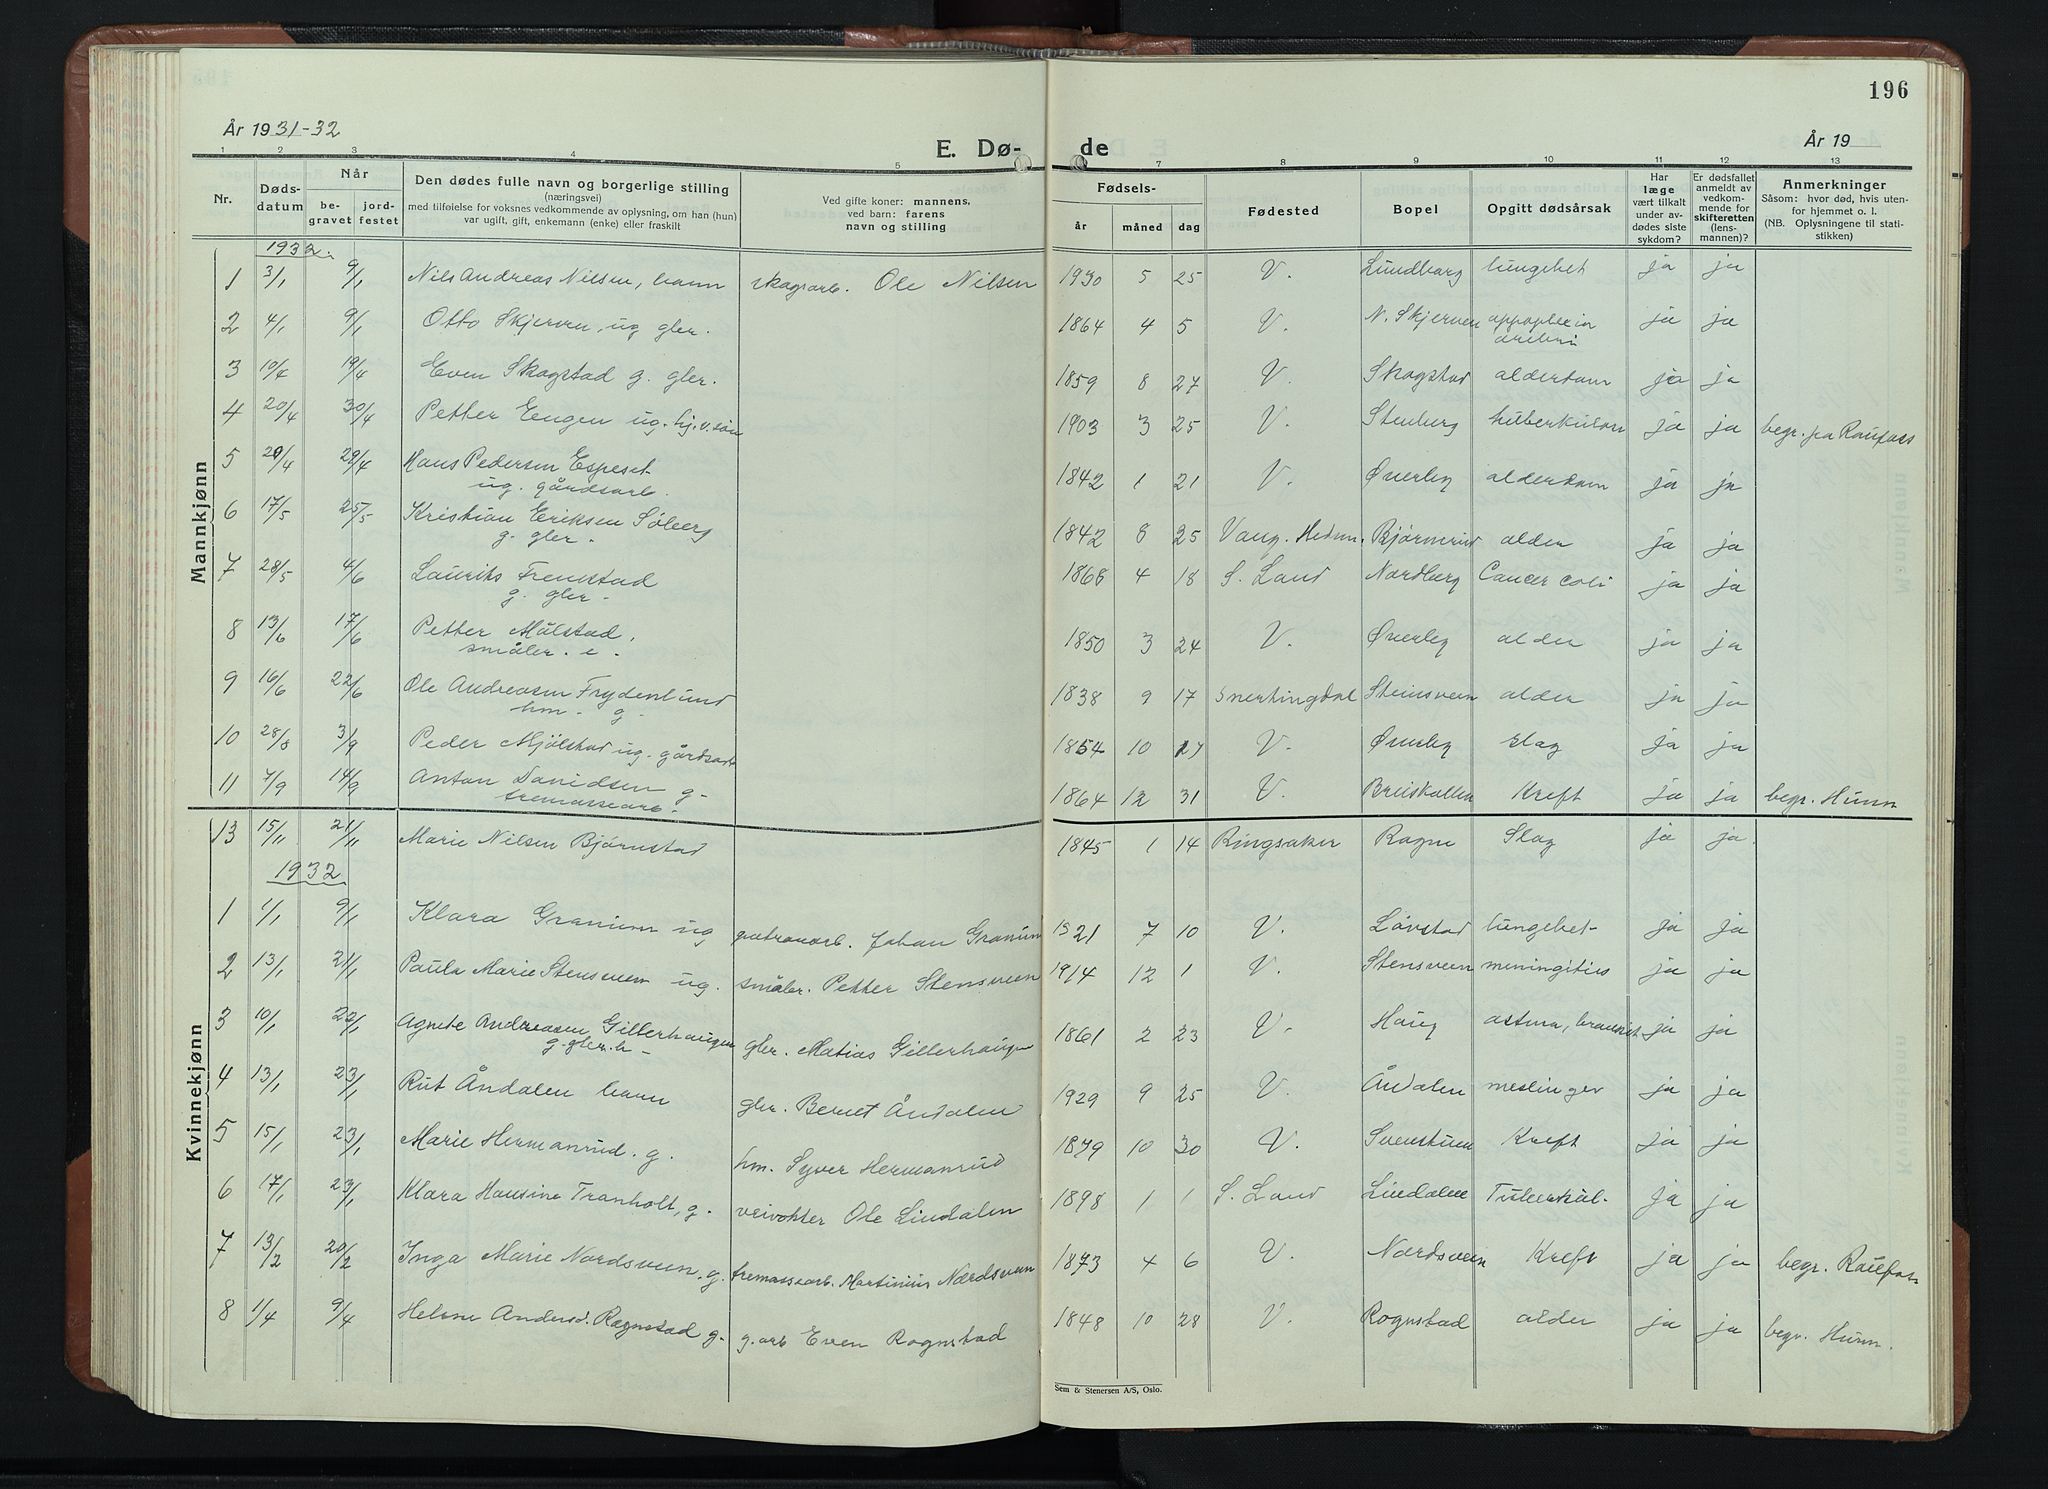 196
År 1931-32
E. Dø-
de
År 19
1 2 3 4 5
7 8 9 10 11 12 13
Nr.
Døds-
datum
Når
be-
gravet
jord-
festet
Den dødes fulle navn og borgerlige stilling
(næringsvei)
med tilføielse for voksnes vedkommende av oplysning, om han (hun)
var ugift, gift, enkemann (enke) eller fraskilt
Ved gifte koner: mannens,
ved barn: farens
navn og stilling
Fødsels-
år måned dag
Fødested
Bopel
Opgitt dødsårsak
Har
læge
vært tilkalt
under av-
dødes siste
sykdom?
Er dødsfallet
anmeldt av
vedkom-
mende for
skifteretten
(lens-
mannen)?
Anmerkninger
Såsom: hvor død, hvis uten-
for hjemmet o. l.
(NB. Oplysningene til stati-
stikken)
Mannkjønn
1932.
1 3/1 9/1 Nils Andreas Nilsen, barn skogsarb. Ole Nilsen 1930 5 25 V. Lundberg lungebet ja ja
2 4/1 9/1 Otto Skjerven, ug gbr. 1864 4 5 V. N. Skjerven appoplexia ja ja
3 10/4 19/4 Even Skogstad g. gbr. 1859 8 27 V. Skogstad alderdom ja ja
4 20/4 30/4 Petter Engen ug. hj.v. søn 1903 3 25 V. Stenberg tuberkulose ja ja begr. på Raufoss
5 20/4 29/4 Hans Pedersen Espeset 1842 1 21 V. Øverby alderdom ja ja
ug. gårdsarb.
6 17/5 25/5 Kristian Eriksen Søberg 1842 8 25 Vang. Hedm. Bjørnerud alder ja ja
g. gbr.
7 28/5 4/6 Laurits Fremstad 1868 4 18 S. Land Nordberg Cancer coli ja ja
g. gbr.
8 13/6 17/6 Petter Målstad, 1850 3 24 V. Øverby alder ja ja
småbr. e.
9 16/6 22/6 Ole Andreasen Frydenlund 1838 9 17 Snertingdal Steinsveen alder ja ja
hm. g.
10 28/8 3/9 Peder Mjølstad ug. gårdsarb 1854 10 27 V. Øverby slag ja ja
11 7/9 14/9 Anton Davidsen g. 1864 12 31 V. Breiskallen Kreft ja ja begr. Hunn
tremassearb.
Kvinnekjønn
13 15/11 21/11 Marie Nilsen Bjørnstad 1845 1 14 Ringsaker Rogne Slag ja ja.
1932
1 1/1 9/1 Klara Granum ug patronarb. Johan Granum 1921 7 10 V. Løvstad lungebet. ja ja
2 13/1 21/1 Paula Marie Stensveen ug. småbr. Petter Stensveen 1914 12 1 V. Stensveen meningitis ja ja
3 10/1 22/1 Agnete Andreasen Gillerhaugen gbr. Matias Gillerhaugen 1861 2 23 V. Haug astma, bronkit. ja ja
g. gbr. h.
4 13/1 23/1 Rut Åndalen barn gbr. Bernt Åndalen 1929 9 25 V. Åndalen meslinger ja ja
5 15/1 23/1 Marie Hermanrud. g. hm. Syver Hermanrud 1879 10 30 V. Svenstuen Kreft ja ja
6 17/1 23/1 Klara Hansine Tranholt, g. veivokter Ole Lindalen 1898 1 1 S. Land Lindalen Tuberkul. ja ja
7 13/2 20/2 Inga Marie Nordsveen. g. tremassearb. Martinius Nordsveen 1873 4 6 V. Nordsveen Kreft ja ja begr. Raufoss
8 1/4 9/4 Helene Andersd. Rognstad g. g.arb Even Rognstad 1848 10 28 V. Rognstad alder ja ja begr. Hunn.
Sem & Stenersen A/S, Oslo.